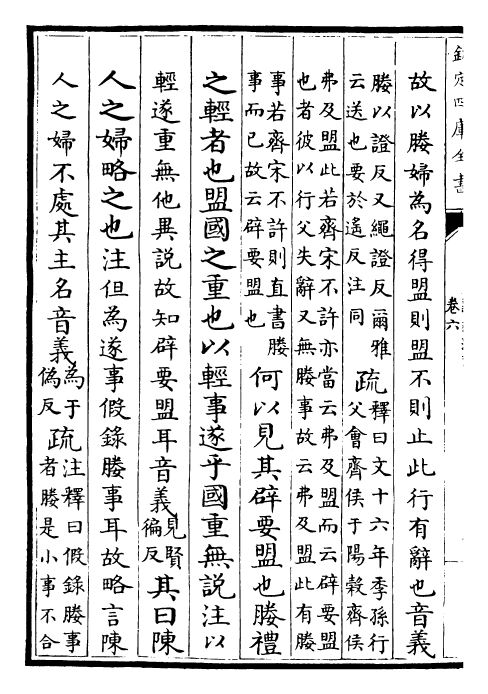 欽定四庫全書
卷六
故以媵婦為名得盟則盟不則止此行有辭也音義
媵以證反又繩證反爾雅
云送也要於遙反注同
疏
釋曰文十六年季孫行
父會齊侯于陽穀齊侯
弗及盟此若齊宋不許亦當云弗及盟而云辟要盟
也者彼以行父失辭又無媵事故云弗及盟此有媵
事若齊宋不許則直書媵
事而已故云辟要盟也
何以見其辟要盟也媵禮
之輕者也盟國之重也以輕事遂乎國重無說注以
輕遂重無他異說故知辟要盟耳音義
見賢
徧反
其曰陳
人之婦略之也注但為遂事假錄媵事耳故略言陳
人之婦不處其主名音義
為于
偽反
疏
注釋曰假錄媵事
者媵是小事不合